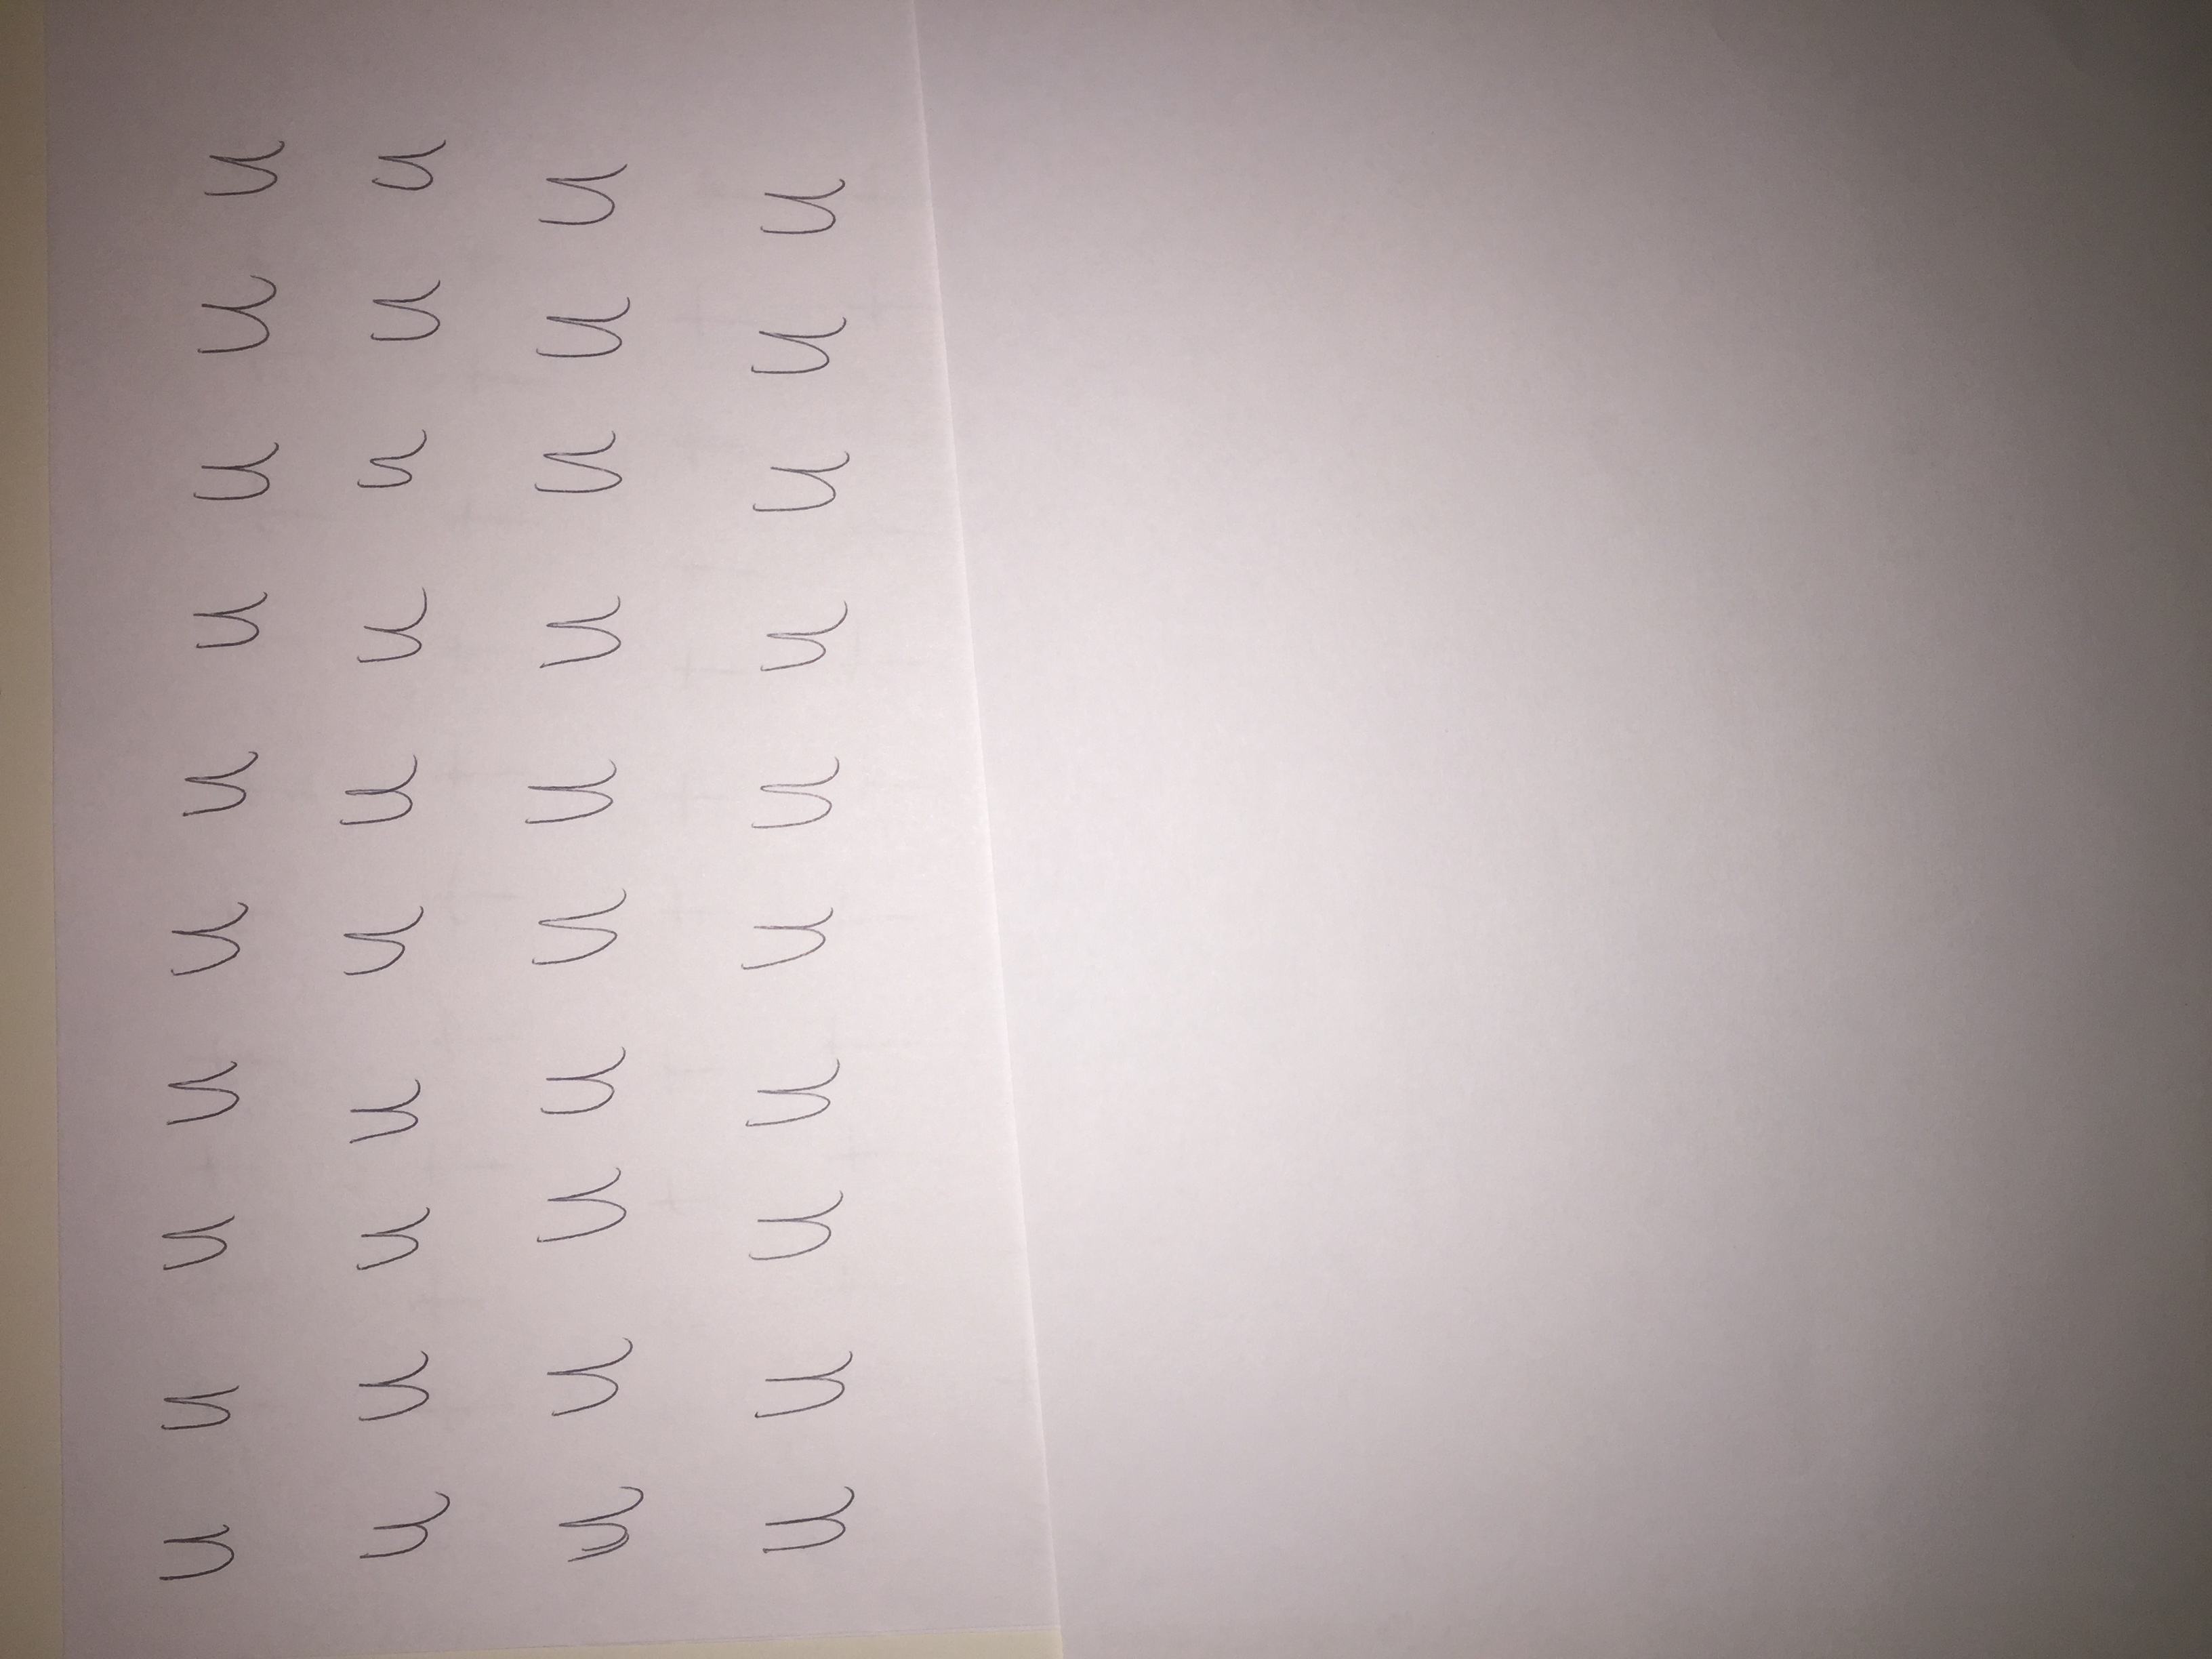 u u u u u u u u u u
u u u u u u u u u u
u u u u u u u u u u
u u u u u u u u u u